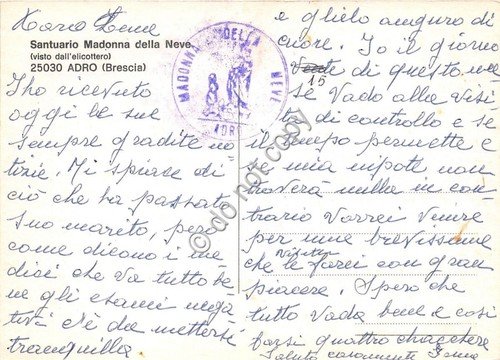 Kara Irene
Santuario Madonna della Neve
(visto dall'elicottero)
25030 ADRO (Brescia)
MADONNA DELLA NEVE
ADRO
I ho ricevuto
oggi le sue
sempre gradite no
tizie. Mi spiace di
ciò che ha passato
suo marito, però
come dicono i me
dici che va tutto be
ne gli esami nega
tivi c'è da mettersi
tranquilla
e glielo auguro di
cuore. Io il giorno
15
di questo me
se vado alla visi
ta di controllo e se
il tempo permette e
se mia nipote non
troverà nulla in con
trario vorrei venire
per une brevissime
visite
che le farei con gran
piacere. Spero che
tutto vada bene e così
farsi quattro chiacchere
Saluto caramente
do not copy